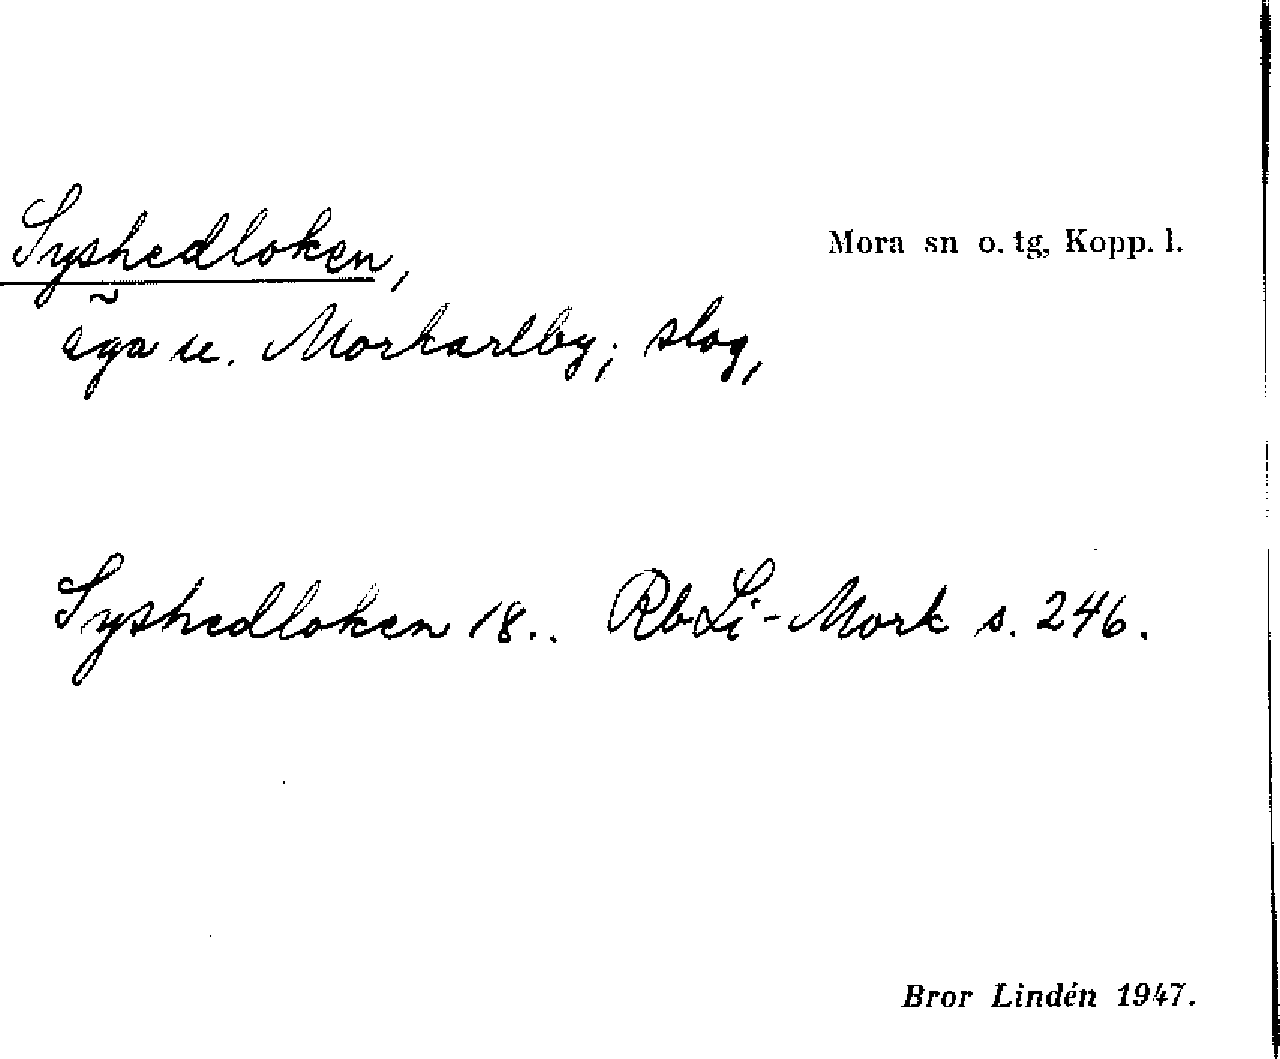 Syshedloken,
Mora sn o. tg, Kopp. l.
äga u. Morkarlby; slog,
Syshedloken 18.. RbLi-Mork s. 246.
Bror Lindén 1947.